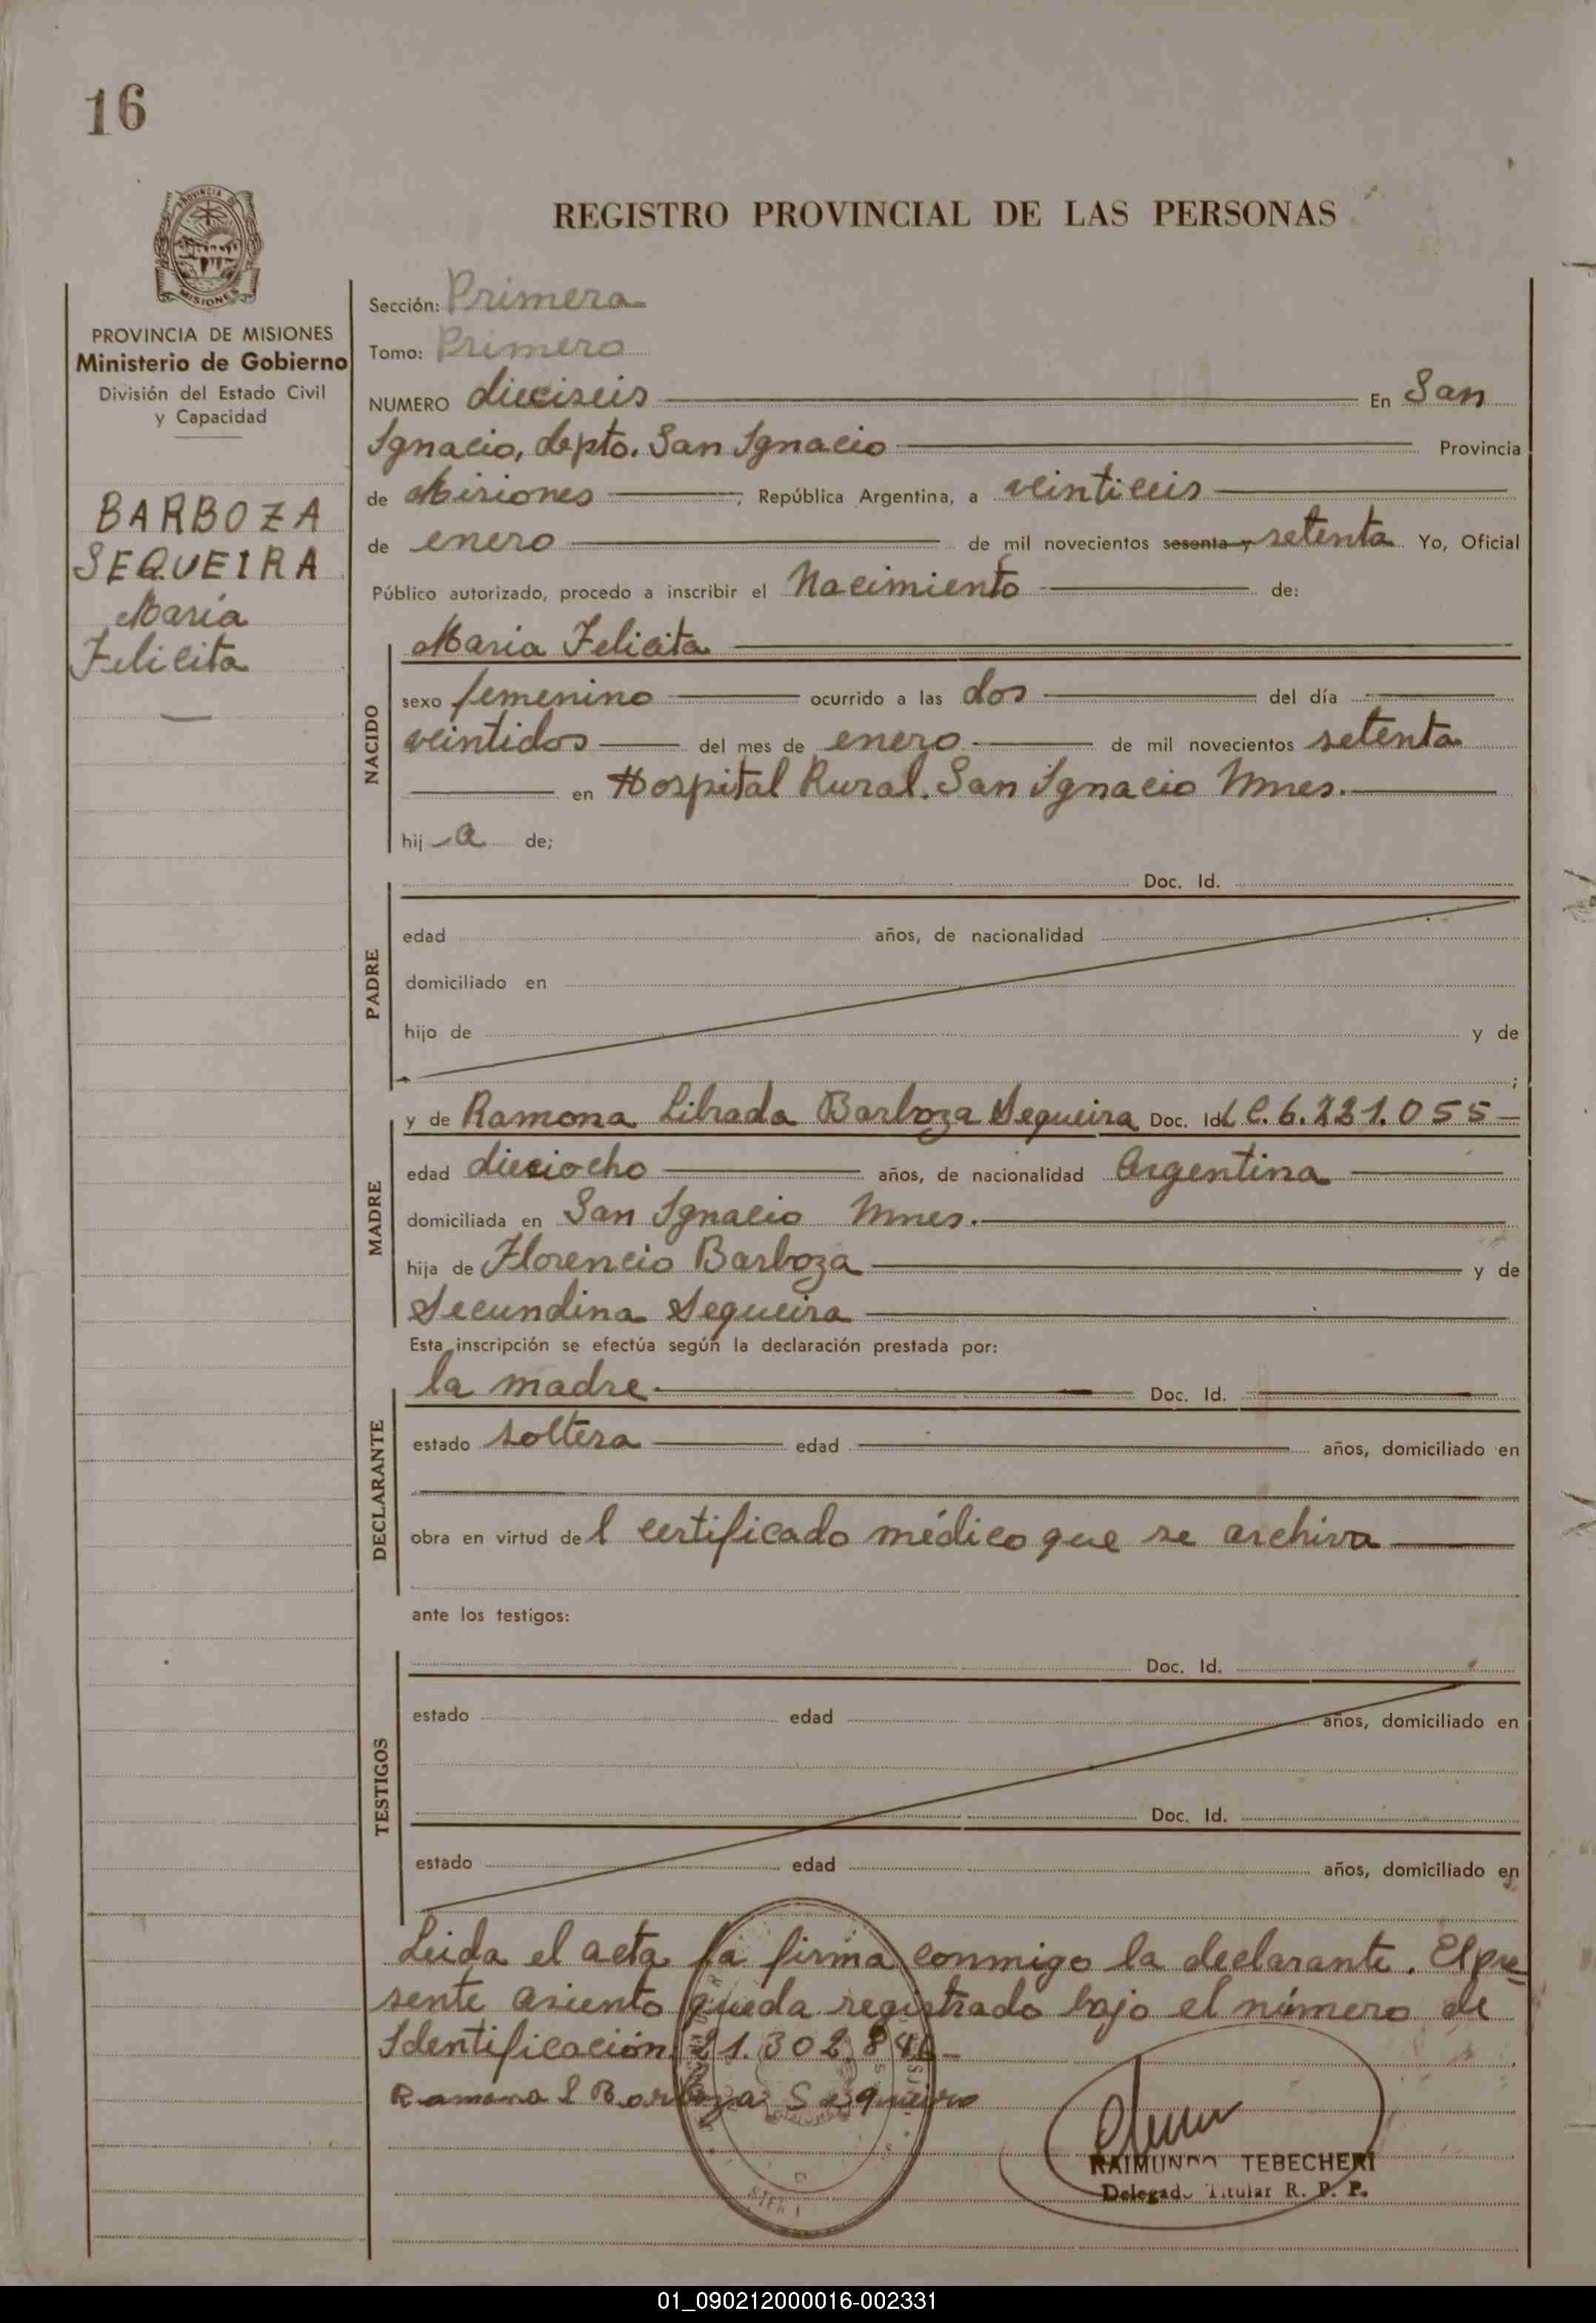 16
PROVINCIA
MISIONES
REGISTRO PROVINCIAL DE LAS PERSONAS
PROVINCIA DE MISIONES
Ministerio de Gobierno
División del Estado Civil
y Capacidad
BARBOZA
SEQUEIRA
Maria
Felicita
Sección: Primera
Tomo: Primero
NUMERO dieciseis En San
Ignacio, depto. San Ignacio Provincia
de Misiones, República Argentina, a veintiseis
de enero de mil novecientos sesenta y setenta Yo, Oficial
Público autorizado, procedo a inscribir el Nacimiento de:
NACIDO
Maria Felicita
sexo femenino ocurrido a las dos del día
veintidos del mes de enero de mil novecientos setenta
en Hospital Rural. San Ignacio Mnes.
hij a de;
PADRE
Doc. Id.
edad años, de nacionalidad
domiciliado en
hijo de y de
;
MADRE
y de Ramona Librada Barboza Sequeira Doc. Id. L.C. 6.221.055
edad dieciocho años, de nacionalidad Argentina
domiciliada en San Ignacio Mnes.
hija de Florencio Barboza y de
Secundina Sequeira
Esta inscripción se efectúa según la declaración prestada por:
DECLARANTE
la madre Doc. Id.
estado soltera edad años, domiciliado en
obra en virtud de l certificado médico que se archiva
ante los testigos:
TESTIGOS
Doc. Id.
estado edad años, domiciliado en
Doc. Id.
estado edad años, domiciliado en
Leida el acta la firma conmigo la declarante. El pre-
sente asiento queda registrado bajo el número de
Identificación 21.302.846
Ramona L Barboza Sequeira
RAIMUNDO TEBECHERI
Delegado Titular R. P. P.
01_090212000016-002331